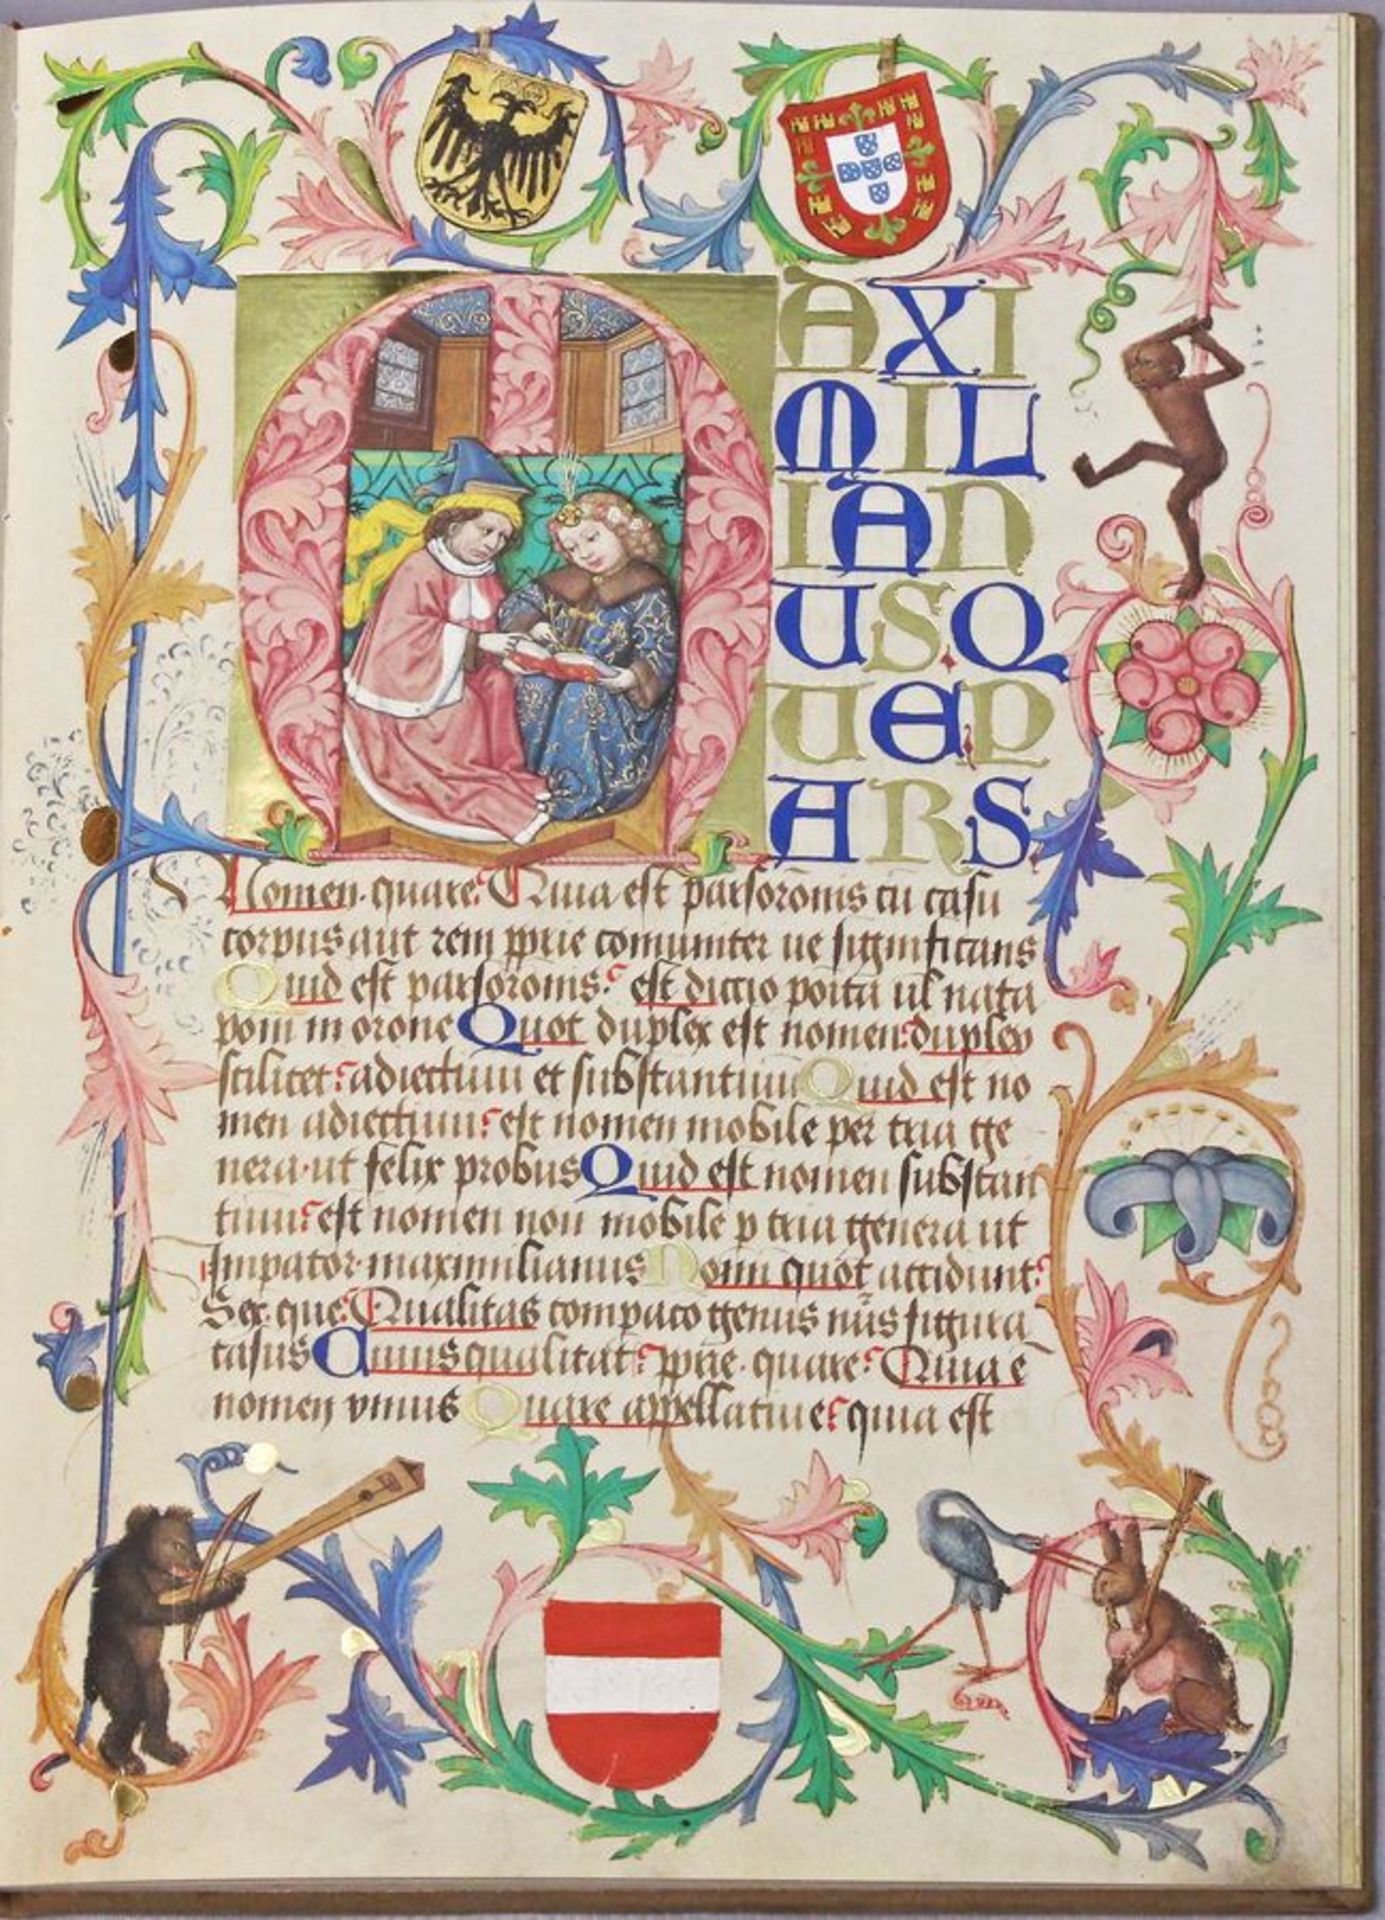 MAXI
MIL
IAN
US. Q
UE. P
ARS
Nomen. quare? Quia est parsorōnis cū casu
corpus aut rem pprie comuniter ue significans
Quid est parsorōnis? est dictio poita ul nata
poni in orone Quot duplex est nomen? duplex
scilicet? adiectiuu et substantiuu Quid est no
men adiectiuu? est nomen mobile per tria ge
nera. ut felix probus Quid est nomen substan
tiuu? est nomen non mobile p tria genera ut
Impator. maximilianus Noni quot accidunt?
Sex. que? Qualitas compaco genus nūs figura
casus Cuius qualitat? pprie. quare? Quia ē
nomen vnius Quare appellatiue? quia est